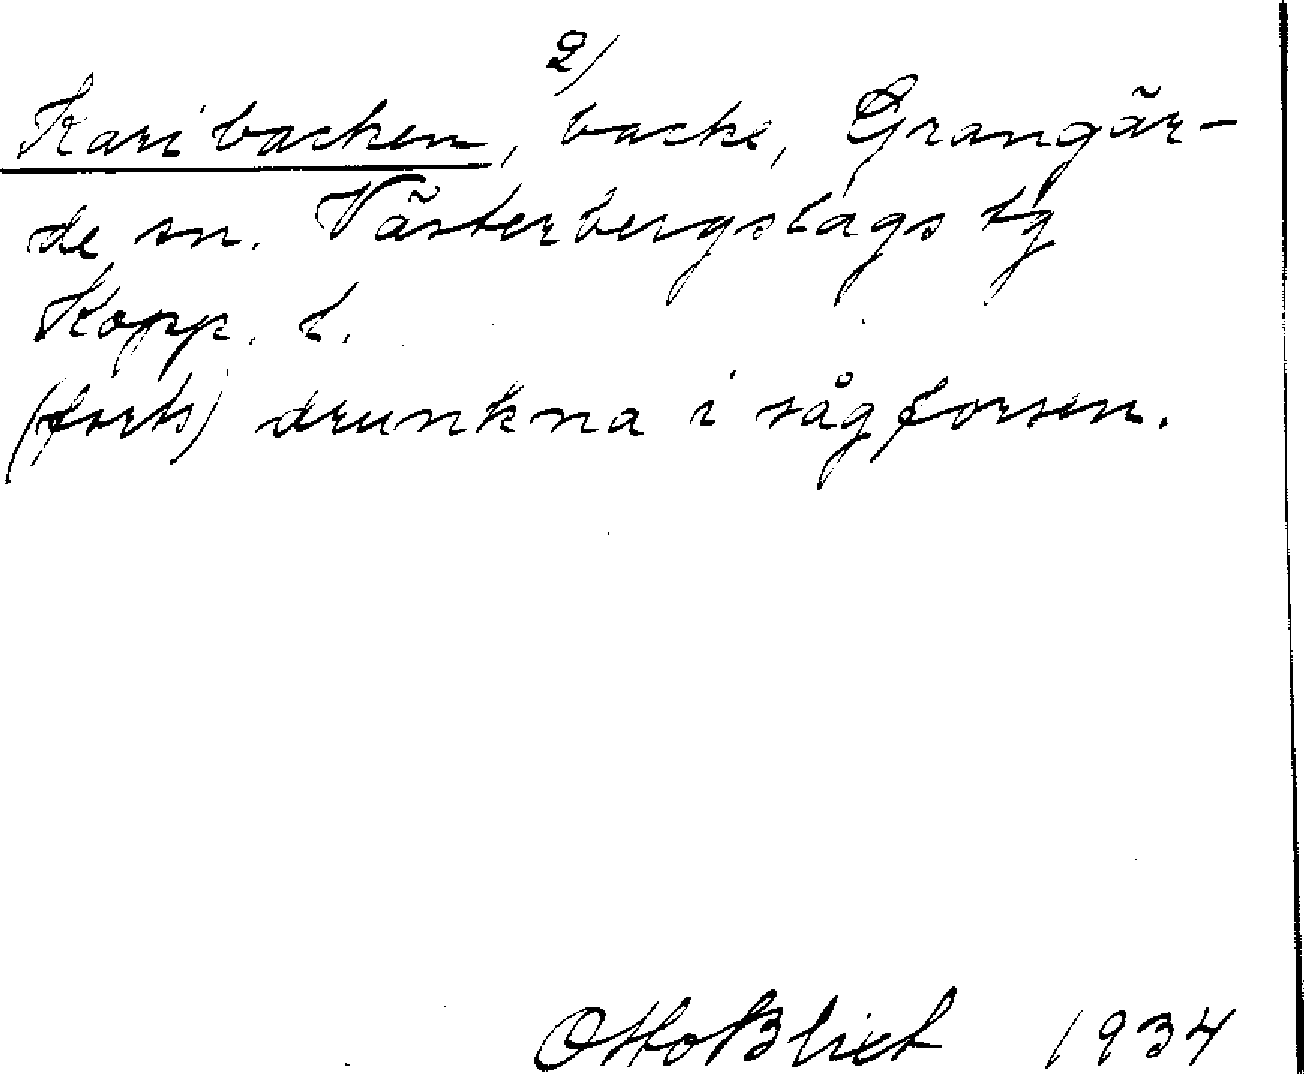 2)
Karibacken, backe, Grangär-
de sn. Västerbergslags tg
Kopp. l.
(forts) drunkna i sågforsen.
Otto Blixt 1934